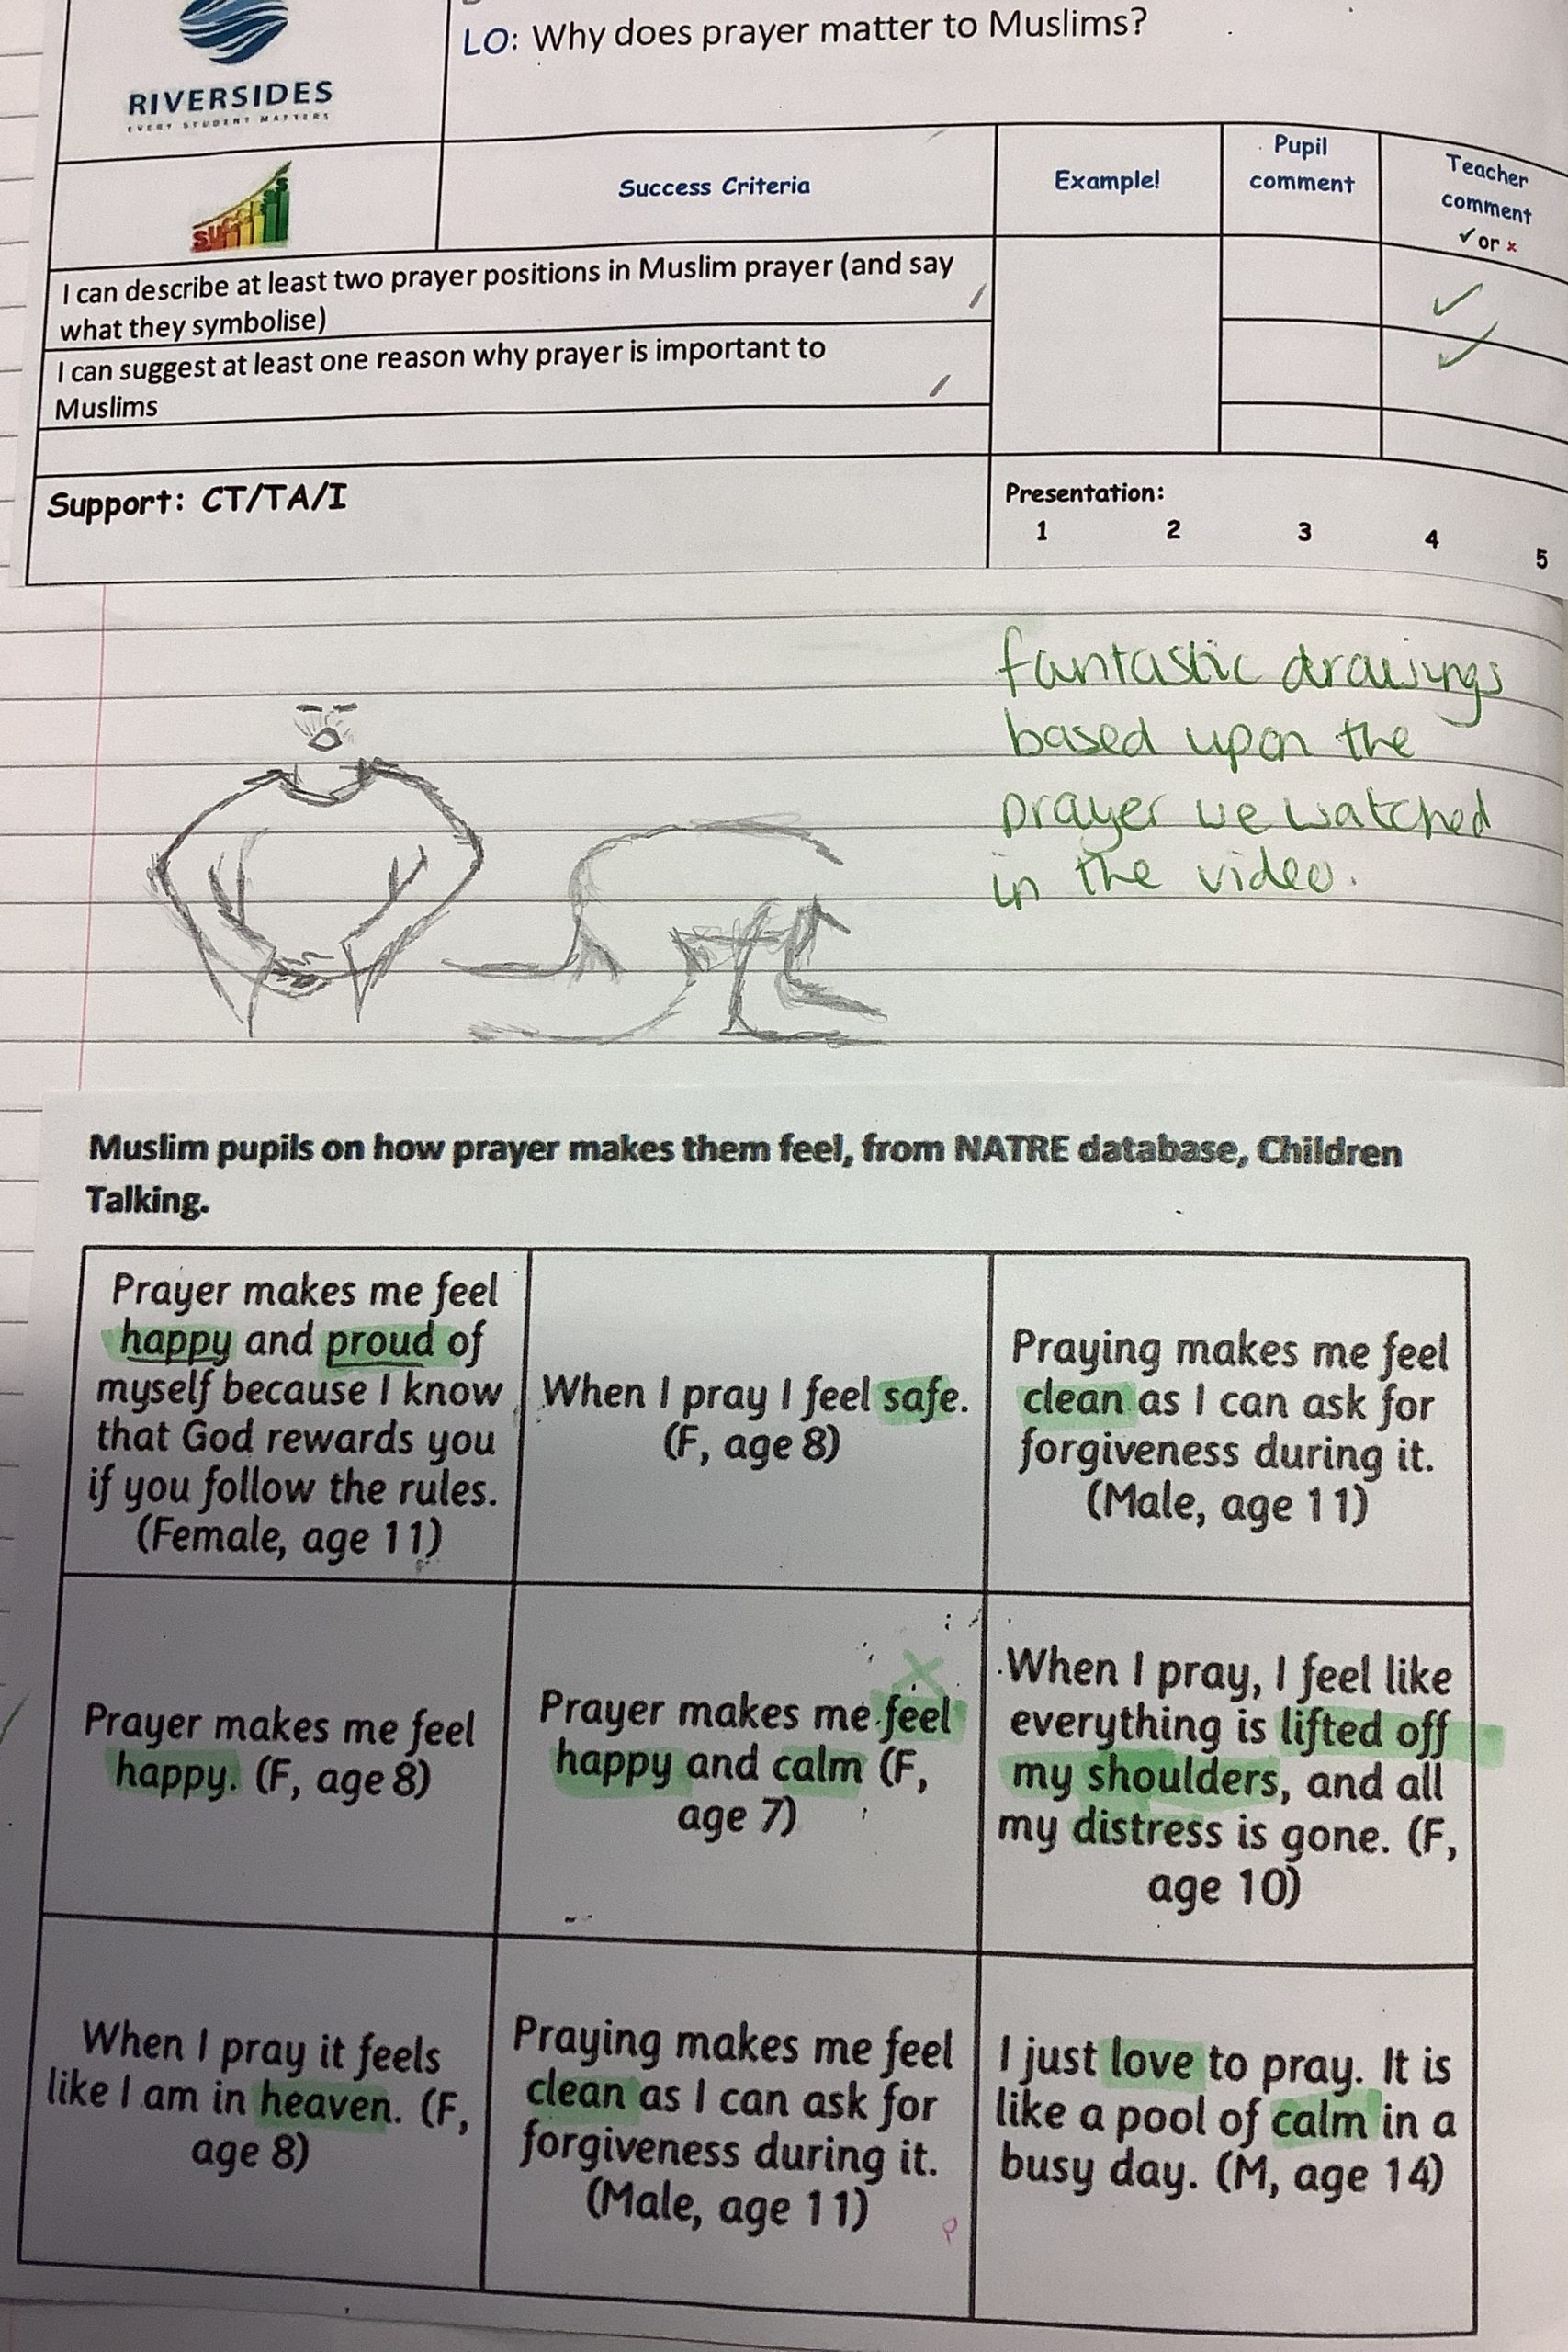 LO: Why does prayer matter to Muslims?
RIVERSIDES
EVERY STUDENT MATTERS
success
Success Criteria
Example!
Pupil
comment
Teacher
comment
✓ or ×
I can describe at least two prayer positions in Muslim prayer (and say
what they symbolise)
I can suggest at least one reason why prayer is important to
Muslims
Support: CT/TA/I
Presentation:
1 2 3 4 5
fantastic drawings
based upon the
prayer we watched
in the video.
Muslim pupils on how prayer makes them feel, from NATRE database, Children
Talking.
Prayer makes me feel
happy and proud of
myself because I know
that God rewards you
if you follow the rules.
(Female, age 11)
When I pray I feel safe.
(F, age 8)
Praying makes me feel
clean as I can ask for
forgiveness during it.
(Male, age 11)
Prayer makes me feel
happy. (F, age 8)
Prayer makes me feel
happy and calm (F,
age 7)
When I pray, I feel like
everything is lifted off
my shoulders, and all
my distress is gone. (F,
age 10)
When I pray it feels
like I am in heaven. (F,
age 8)
Praying makes me feel
clean as I can ask for
forgiveness during it.
(Male, age 11)
I just love to pray. It is
like a pool of calm in a
busy day. (M, age 14)